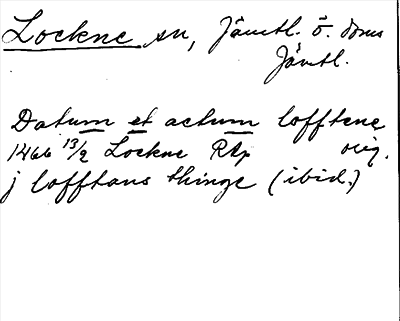 Lockne sn, Jämtl. ö. doms
Jämtl.
Datum et actum lofftene
1466 13/2 Lockne Rap orig.
j lofftans thinge (ibid.)